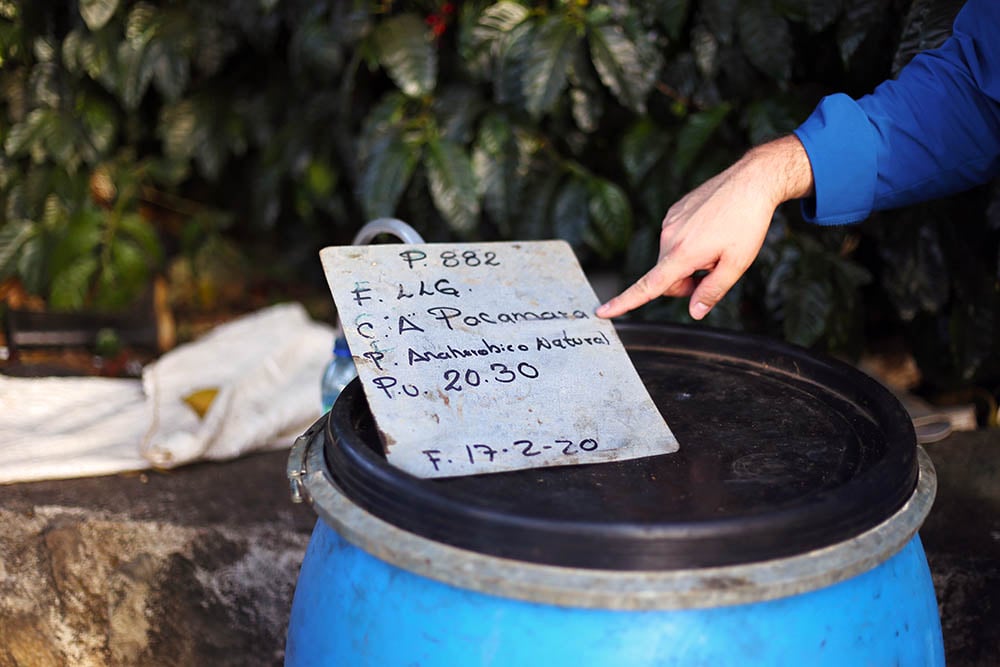 P. 882
F. LLG.
C. A Pacamara
P. Anaherobico Natural
P.u. 20.30
F. 17-2-20